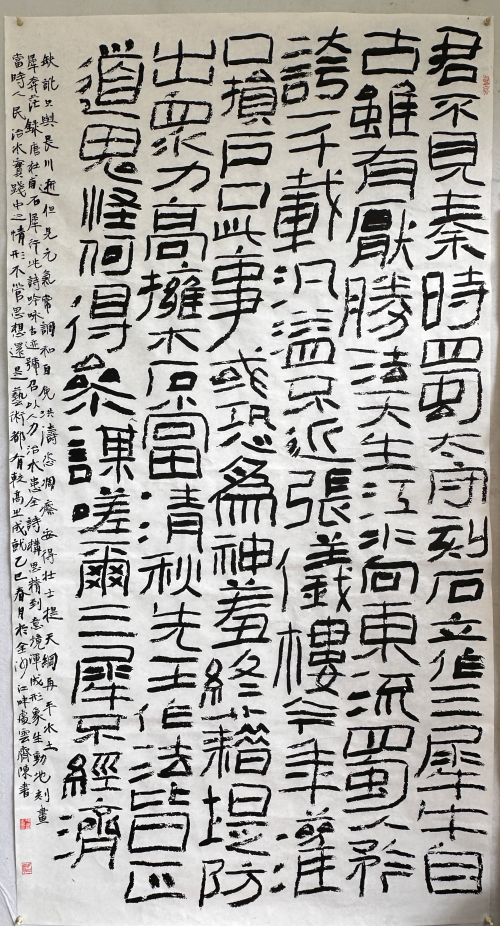 君不見秦時蜀太守刻石立作三犀牛自
古雖有厭勝法天生江水向東流蜀人矜
誇一千載汎溢不近張儀樓今年灌
口損戶口此事或恐為神羞終藉堤防
出眾力高擁木石當清秋先王作法皆正
道鬼怪何得參謀嗟爾三犀不經濟
缺訛只與長川逝但見元氣常調和自免洪濤恣凋瘵安得壯士提天綱再平水土
犀奔茫錄唐杜甫石犀行此詩吟咏古迹號召以人力治水患全詩構思精到意境渾成形象生動地刻畫
當時人民治水實踐中之情形不管思想還是藝術都有較高之成就乙巳春月於金沙江畔雲齊陳書